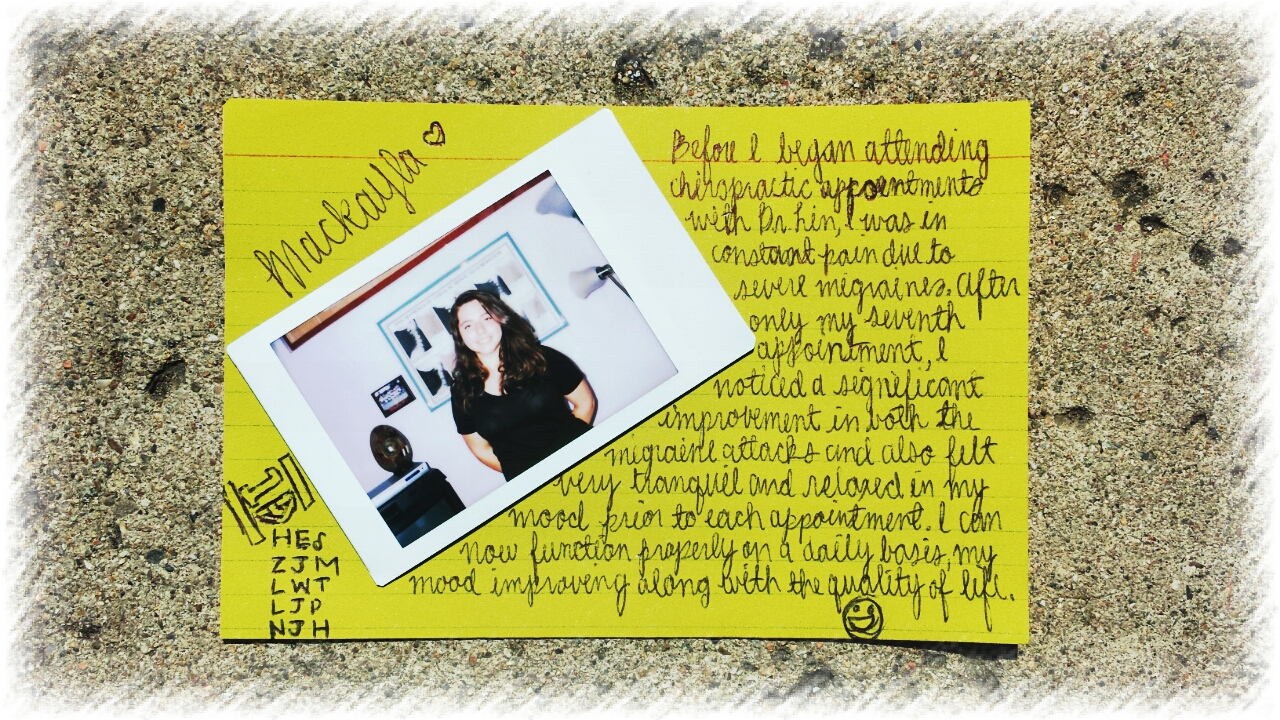 Mackayla
Before I began attending
chiropractic appointments
with Dr. Lin, I was in
constant pain due to
severe migraines. After
only my seventh
appointment, I
noticed a significant
improvement in both the
migraine attacks and also felt
very tranquil and relaxed in my
mood prior to each appointment. I can
now function properly on a daily basis, my
mood improving along with the quality of life.
1D
HES
ZJM
LWT
LJP
NJH